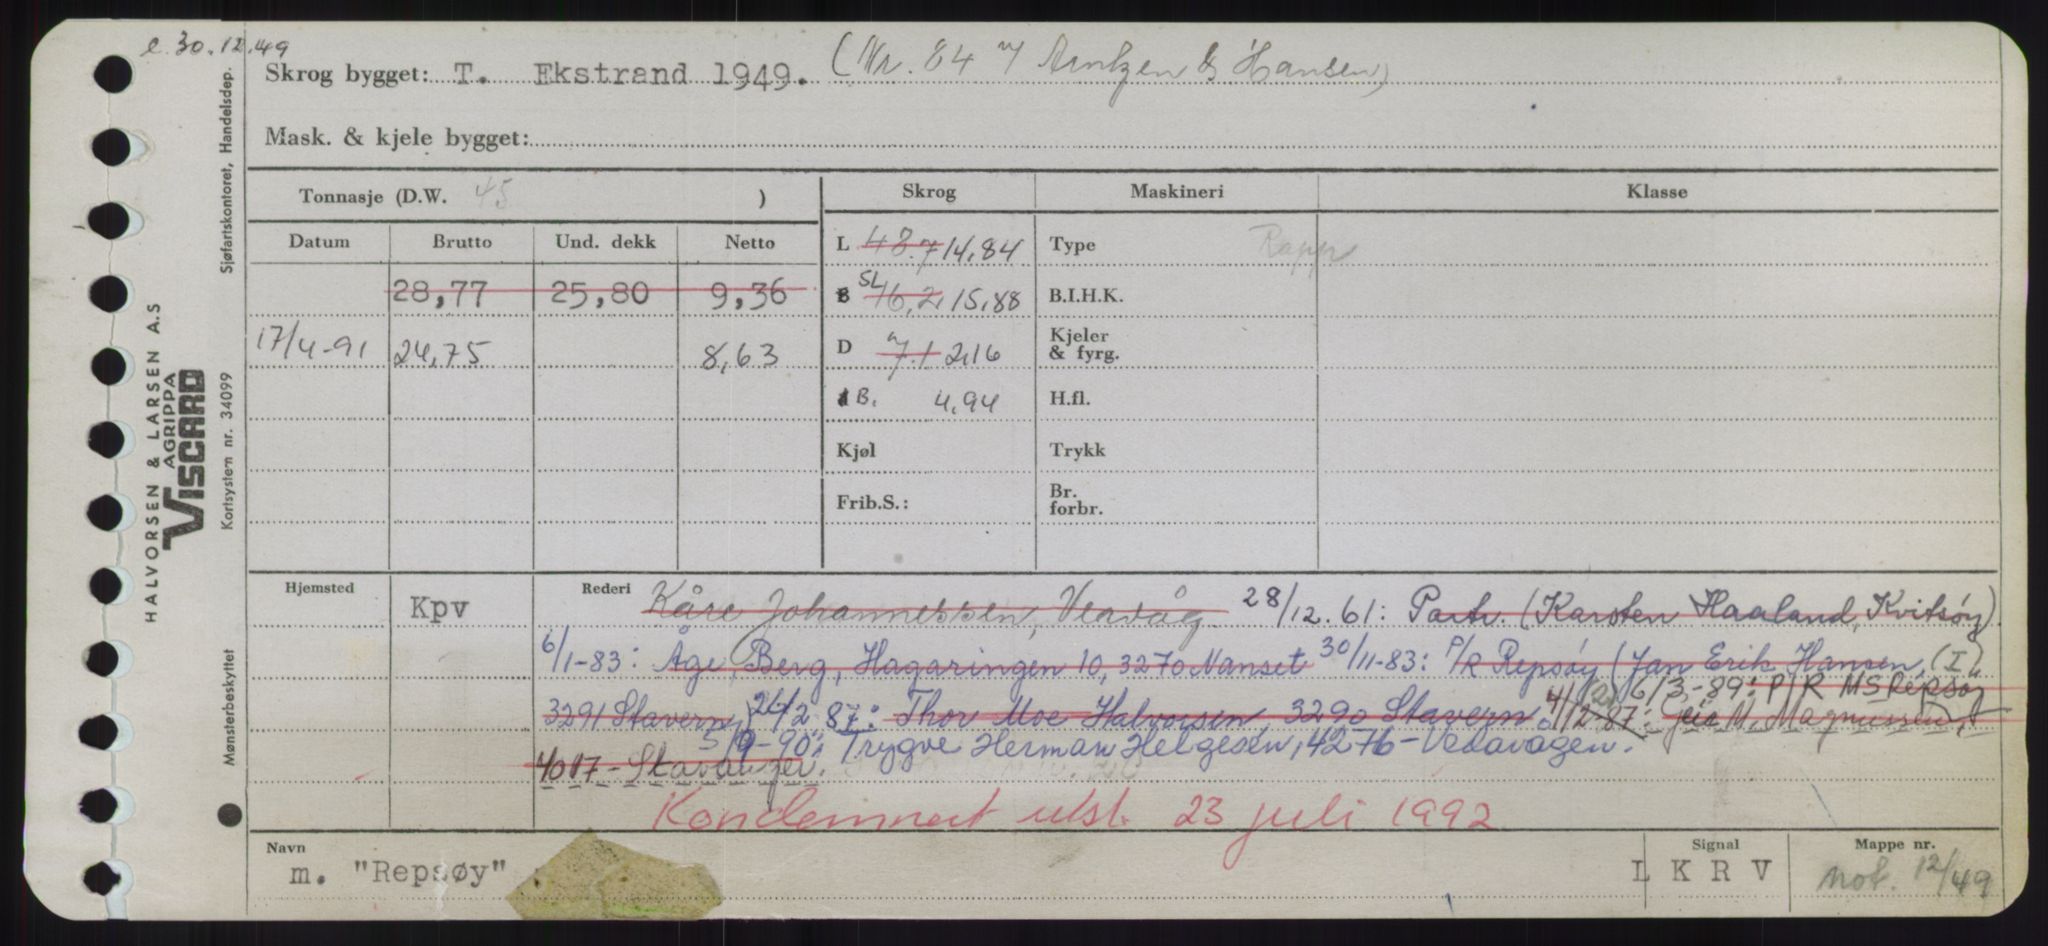 e. 30.12.49
Skrog bygget: T. Ekstrand 1949. (Nr. 84 Arntzen & Hansen)
Mask. & kjele bygget:
Tonnasje (D.W. 45 )
Skrog Maskineri Klasse
Datum Brutto Und. dekk Netto
L 48.7 14,84 Type Rapp
28,77 25,80 9,36
B SL 16,2 15,88 B.I.H.K.
17/4-91 24,75 8,63
D 7.1 2,16 Kjeler & fyrg.
B. 4,94 H.fl.
Kjøl Trykk
Frib.S.: Br. forbr.
Hjemsted Kpv Rederi Kåre Johannessen, Veavåg 28/12.61: Partr. (Karsten Haaland, Kvitsøy)
6/1-83: Åge Berg, Hagaringen 10, 3270 Nanset 30/11-83: P/R Repsøy (Jan Erik Hansen, (I),
6/3-89: P/R MS Repsøy
3291 Stavern) 24/2 87: Thor Moe Halvorsen, 3290 Stavern. 4/12-87: M. Magnussen,
5/9-90: Trygve Herman Helgesen, 4276-Vedavågen.
4017-Stavanger.
Kondemnert utsl. 23 juli 1992
Navn m. "Repsøy"
Signal L K R V
Mappe nr. not. 12/49
HALVORSEN & LARSEN A.S
AGRIPPA
VISCARD
Mønsterbeskyttet Kortsystem nr. 34099 Sjøfartskontoret, Handelsdep.